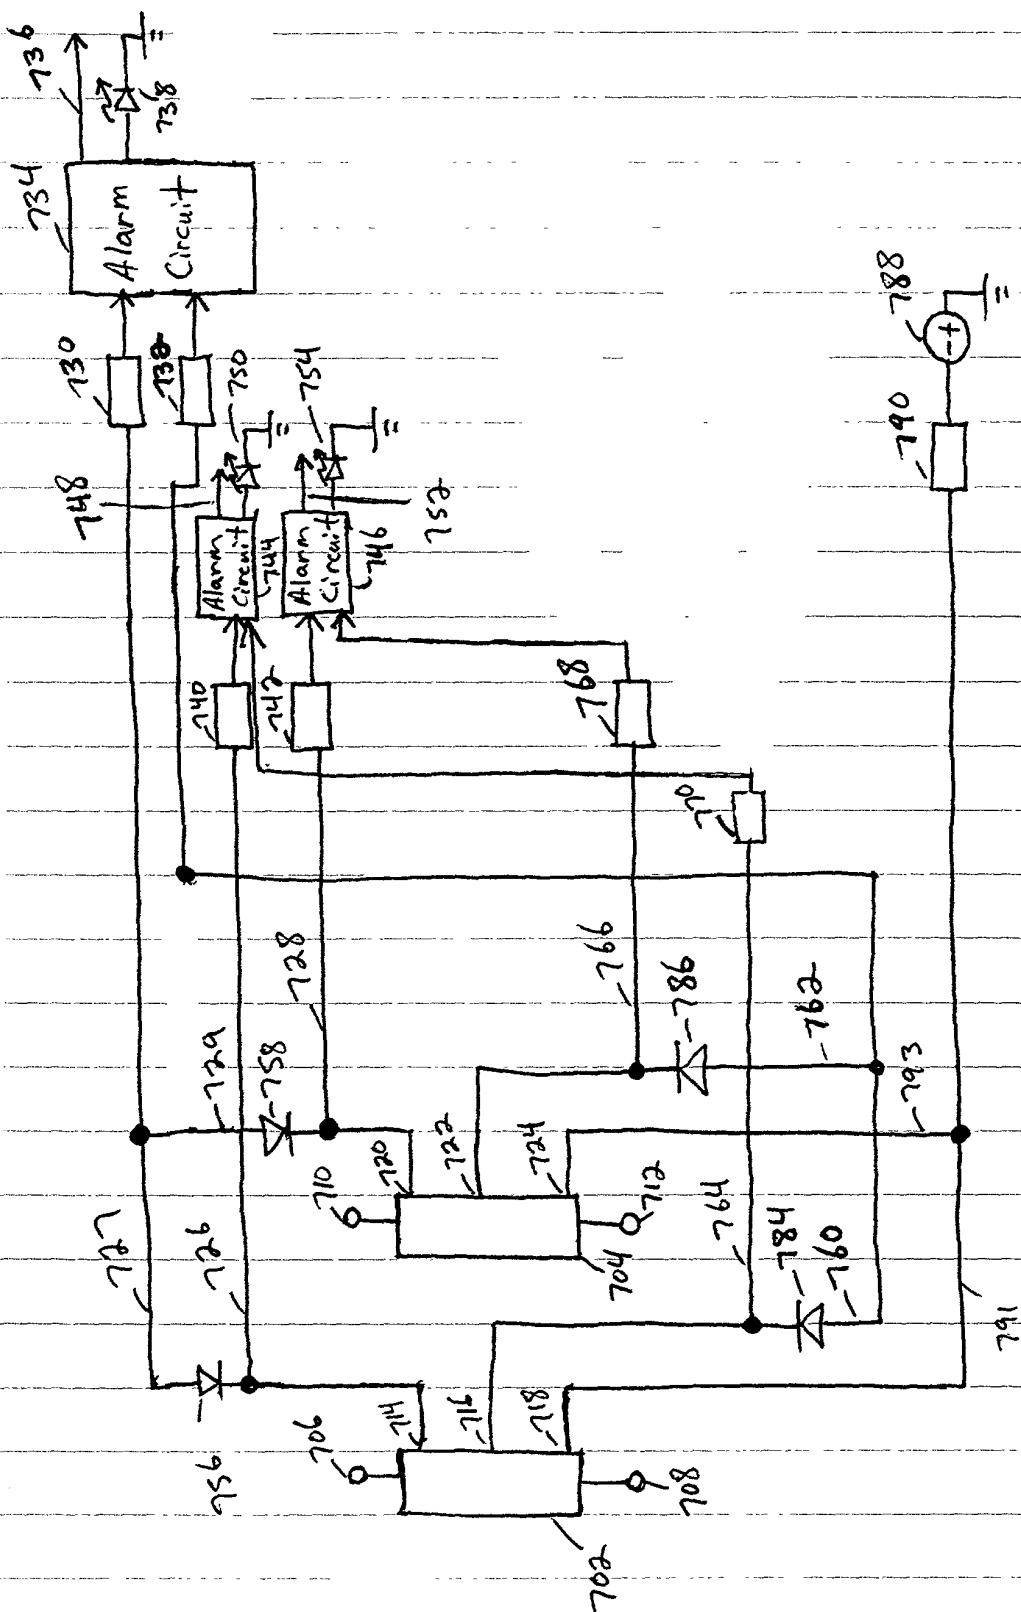 736
738
734
Alarm
Circuit
730
732
750
754
748
752
Alarm
Circuit
744
Alarm
Circuit
746
740
742
768
770
788
790
728
766
786
762
729
758
793
720
722
724
710
712
704
764
784
760
727
726
791
756
714
716
718
706
708
702